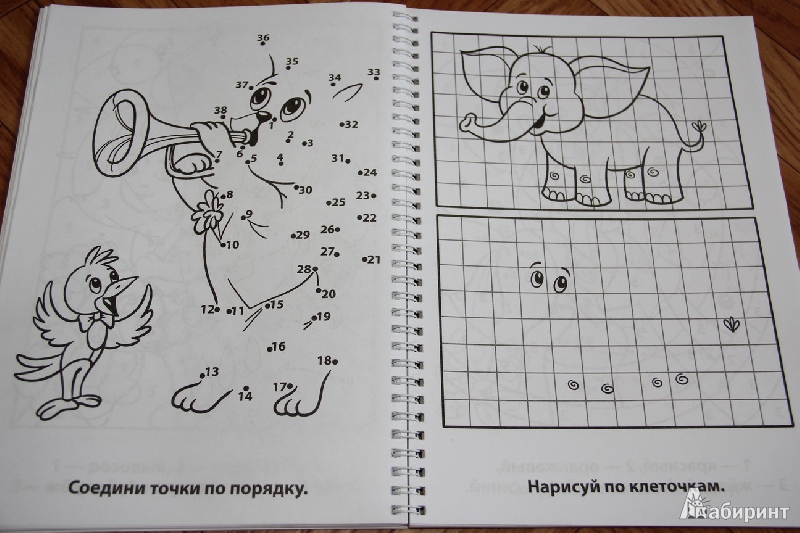 36
35
34
33
37
38
1
32
2
3
6
7
5
4
31
24
30
8
23
25
9
22
26
29
10
27
21
28
20
12
11
15
19
16
18
13
17
14
Соедини точки по порядку.
Нарисуй по клеточкам.
Лабиринт